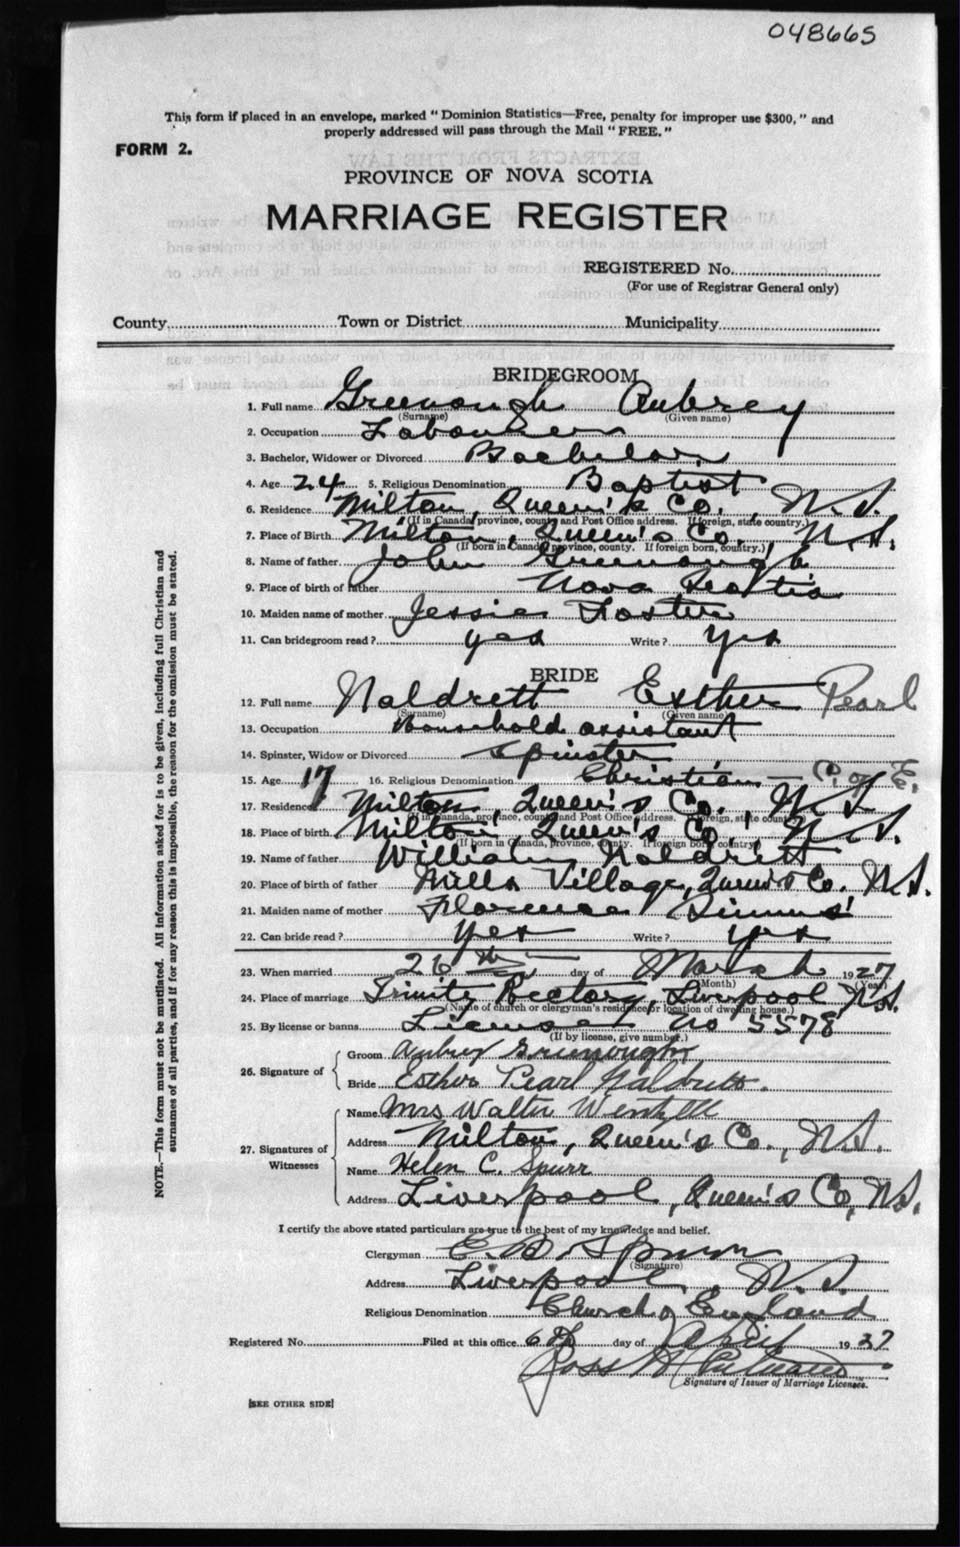 048665
This form if placed in an envelope, marked "Dominion Statistics—Free, penalty for improper use $300," and
properly addressed will pass through the Mail "FREE."
FORM 2.
PROVINCE OF NOVA SCOTIA
MARRIAGE REGISTER
REGISTERED No.
(For use of Registrar General only)
County Town or District Municipality
BRIDEGROOM
1. Full name Greenough Aubrey
(Surname) (Given name)
2. Occupation Labourer
3. Bachelor, Widower or Divorced Bachelor
4. Age 24 5. Religious Denomination Baptist
6. Residence Milton, Queen's Co., N.S.
(If in Canada, province, county and Post Office address. If foreign, state country.)
7. Place of Birth Milton, Queen's Co., N.S.
(If born in Canada, province, county. If foreign born, country.)
8. Name of father John Greenough
9. Place of birth of father Nova Scotia
10. Maiden name of mother Jessie Foster
11. Can bridegroom read? yes Write? yes
BRIDE
12. Full name Naldrett Esther Pearl
(Surname) (Given name)
13. Occupation Household assistant
14. Spinster, Widow or Divorced Spinster
15. Age 17 16. Religious Denomination Christian C. of E.
17. Residence Milton, Queen's Co. N.S.
(If in Canada, province, county and Post Office address. If foreign, state country.)
18. Place of birth Milton Queen's Co., N.S.
(If born in Canada, province, county. If foreign born, country.)
19. Name of father William Naldrett
20. Place of birth of father Mills Village, Queen's Co. N.S.
21. Maiden name of mother Florence Simms
22. Can bride read? Yes Write? Yes
23. When married 26th day of March 1927
(Month) (Year)
24. Place of marriage Trinity Rectory, Liverpool N.S.
(Name of church or clergyman's residence or location of dwelling house.)
25. By license or banns License No 5578
(If by license, give number.)
26. Signature of Groom Aubrey Greenough
Bride Esther Pearl Naldrett.
27. Signatures of Witnesses Name Mrs Walter Wentzell
Address Milton, Queen's Co., N.S.
Name Helen C. Spurr
Address Liverpool, Queen's Co, N.S.
I certify the above stated particulars are true to the best of my knowledge and belief.
Clergyman E. B. Spurr
(Signature)
Address Liverpool, N.S.
Religious Denomination Church of England
Registered No. Filed at this office 6th day of April 1927
Ross
Signature of Issuer of Marriage Licenses.
[SEE OTHER SIDE]
NOTE.—This form must not be mutilated. All information asked for is to be given, including full Christian and
surnames of all parties, and if for any reason this is impossible, the reason for the omission must be stated.